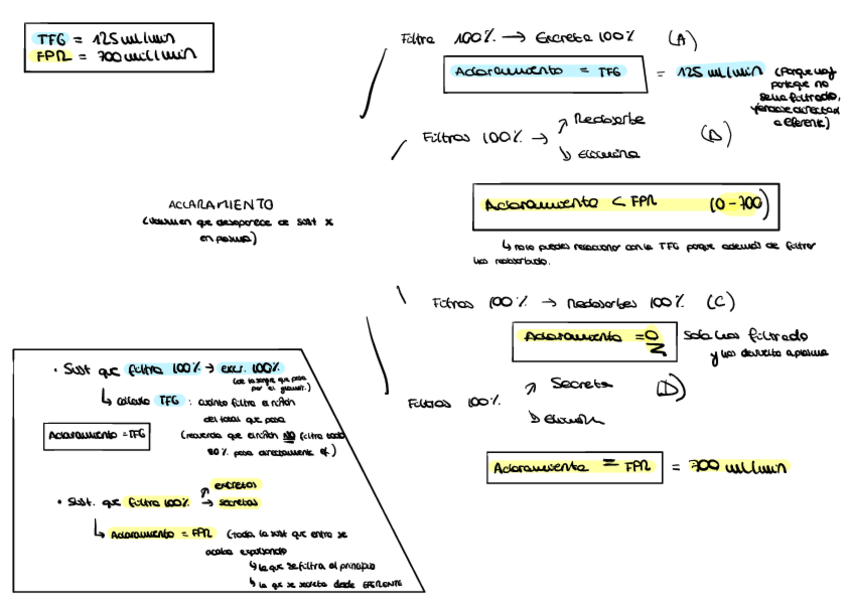 TFG = 125 ml/min
FPR = 700 ml/min
Filtra 100% → Excreta 100% (A)
Aclaramiento = TFG = 125 ml/min (Porque hay
parte que no
se ha filtrado,
directa
a eferente)
Filtras 100% → Reabsorbe
Elimina
(B)
Aclaramiento < FPR (0-700)
↳ no lo puedes relacionar con la TFG porque además de filtrar
has reabsorbido.
ACLARAMIENTO
(Volumen que desaparece de sust x
en plasma)
Filtras 100% → Reabsorbes 100% (C)
Aclaramiento = 0 Solo has filtrado
y has devuelto a plasma
Filtras 100% Secreta
Elimina
(D)
Aclaramiento = FPR = 700 ml/min
• Sust que filtra 100% → excr. 100%
(de la sangre que pasa
por el glomér.)
↳ calculo TFG : cuánto filtra el riñón
del total que pasa
Aclaramiento = TFG (recuerda que el riñón NO filtra todo
80% pasa directamente ef.)
• Sust. que filtra 100% excretas
→ secretas
↳ Aclaramiento = FPR (toda la sust que entra se
acaba expulsando
↳ la que se filtra al principio
↳ la que se secreta desde EFERENTE